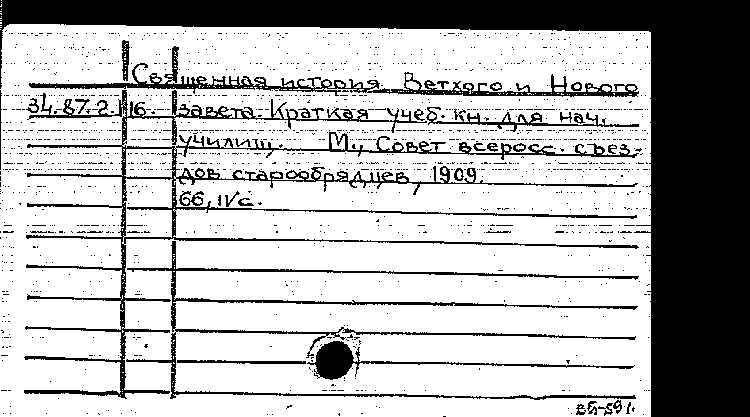 Священная история Ветхого и Нового
34.87.2.116. завета. Краткая учеб. кн. для нач.
училищ. М., Совет всеросс. съез-
дов старообрядцев, 1909.
66, IVс.